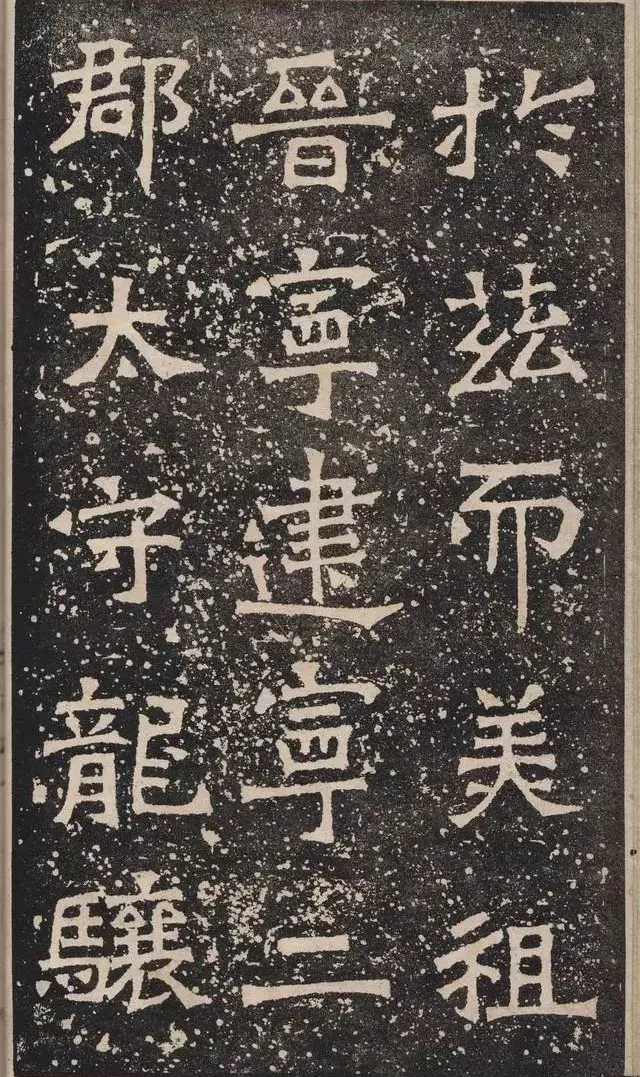 於茲而美祖
晉寧建寧二
郡太守龍驤